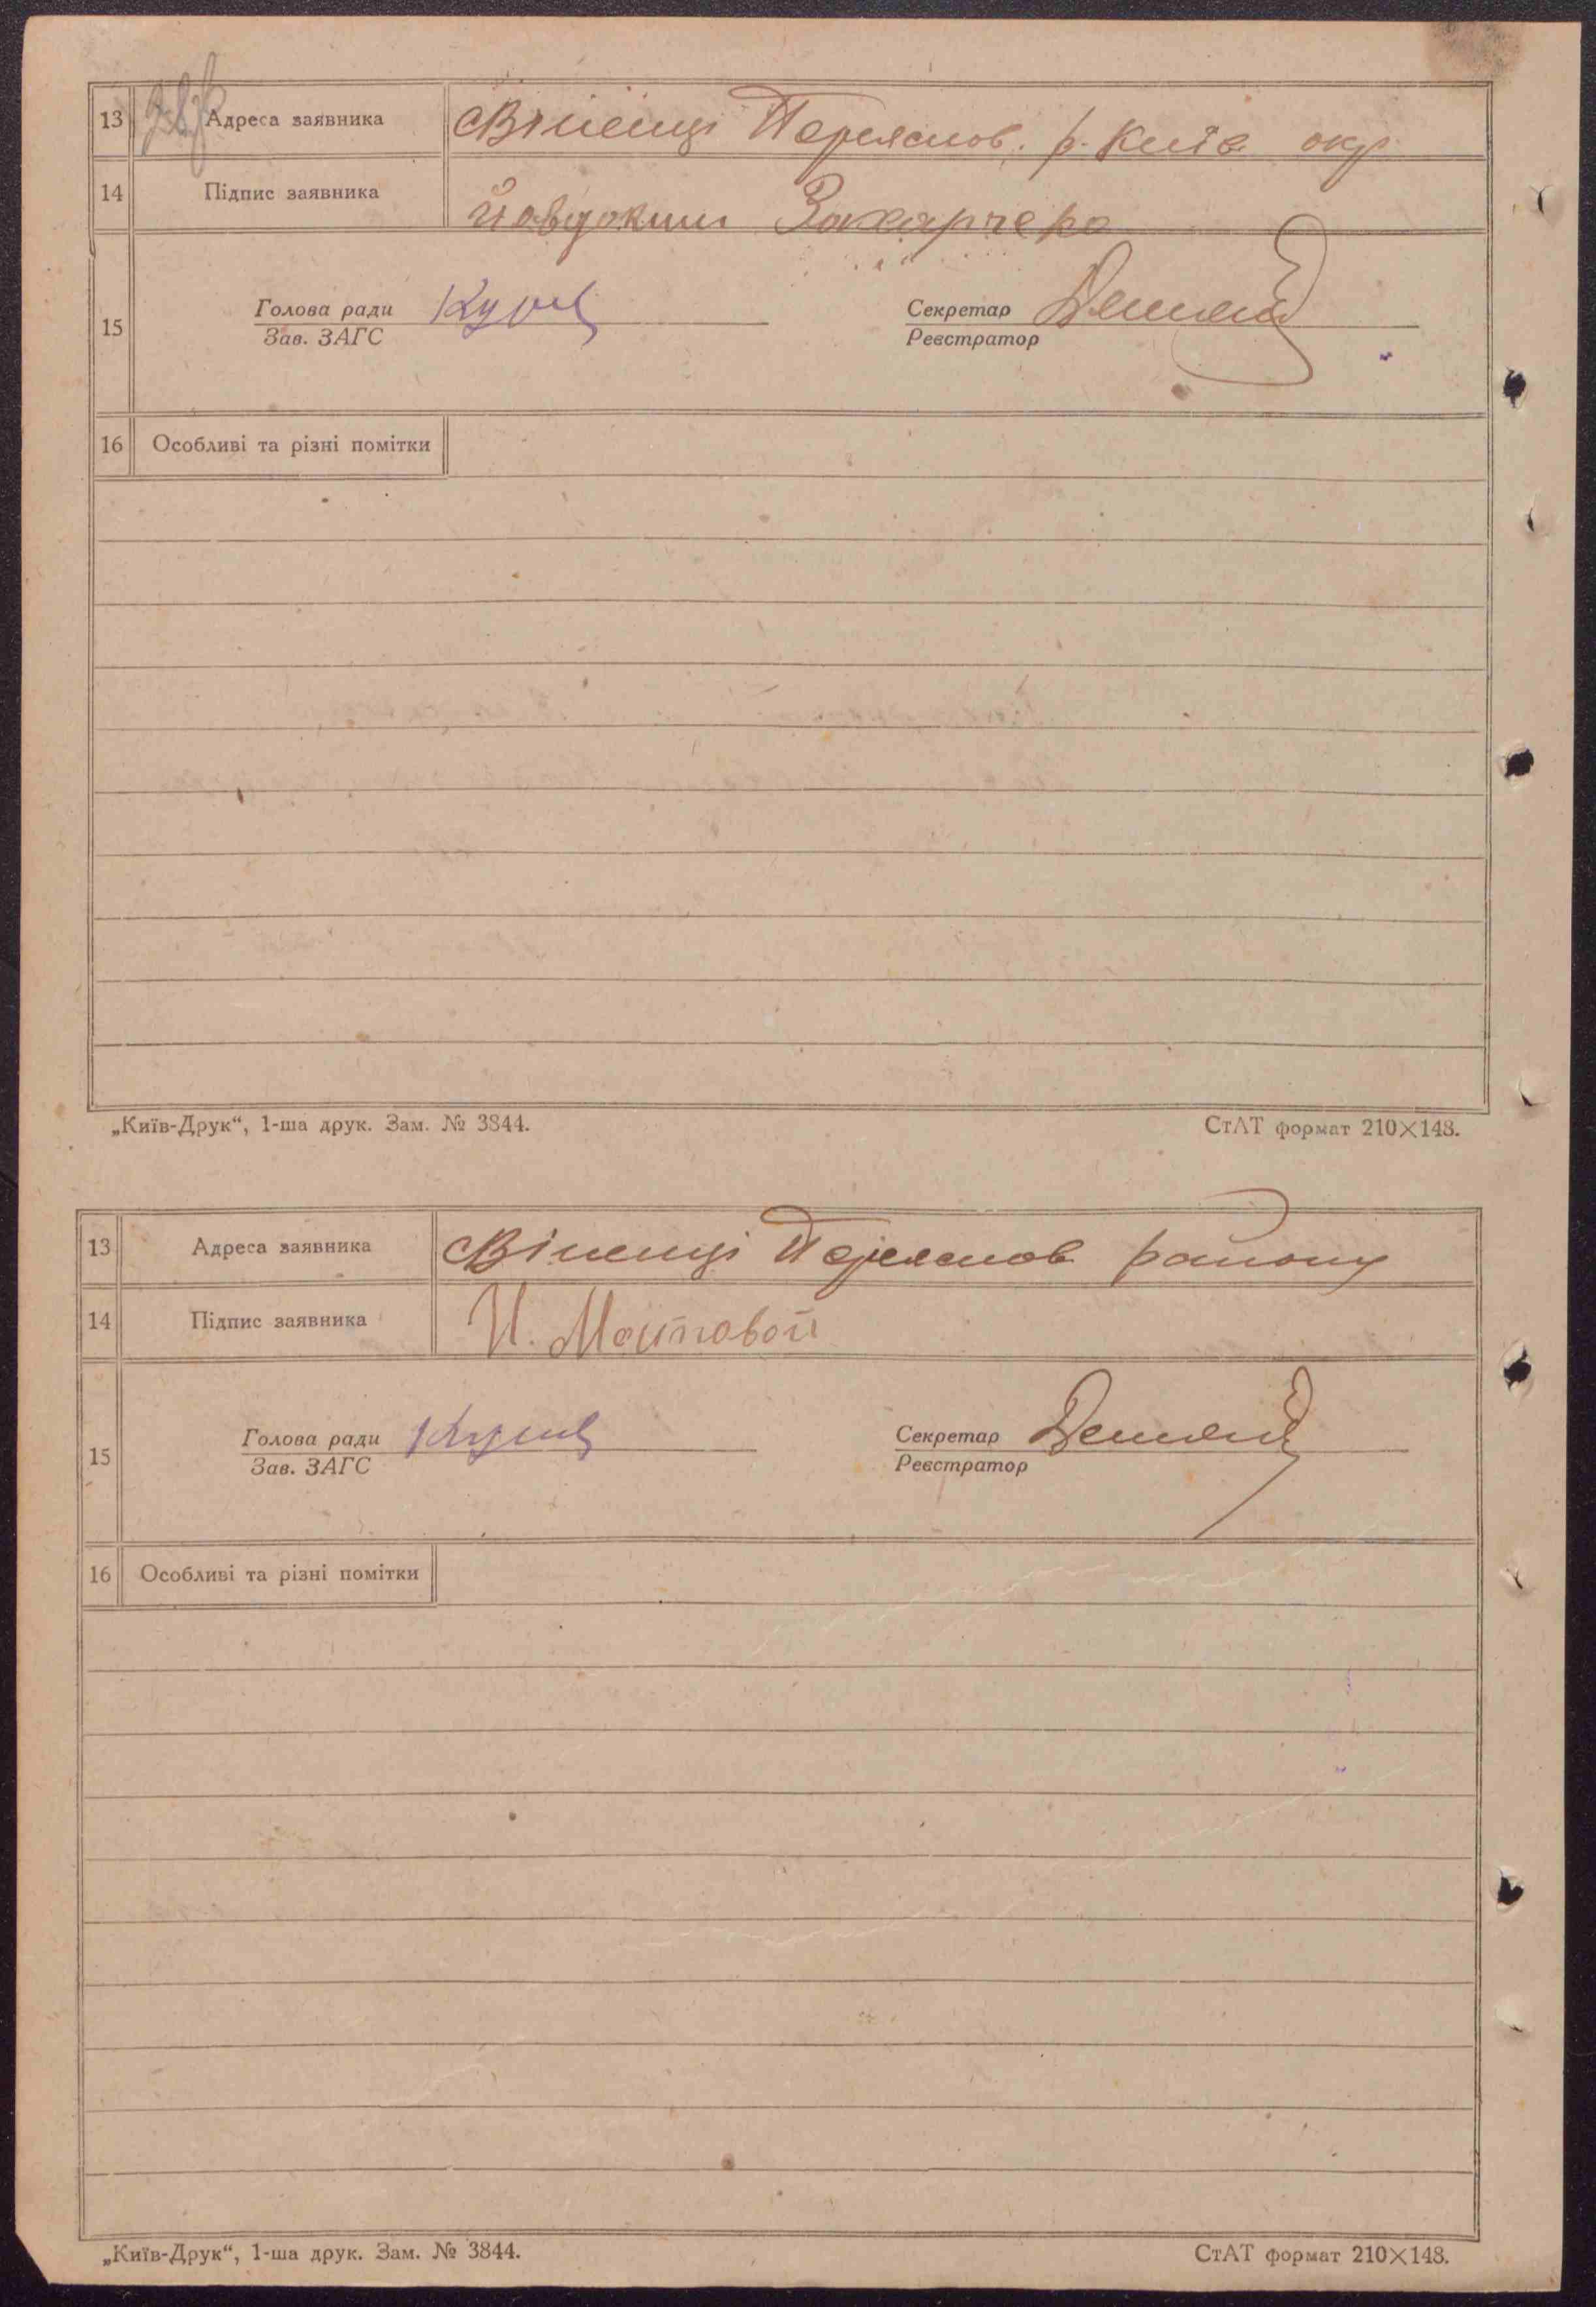 13 Адреса заявника Віненці Переяслов. р. Київ окр
14 Підпис заявника Йовдоким Захарчеко
15 Голова ради Секретар
Зав. ЗАГС Реєстратор
16 Особливі та різні помітки
„Київ-Друк“, 1-ша друк. Зам. № 3844. СтАТ формат 210×148.
13 Адреса заявника Віненці Переяслов району
14 Підпис заявника И. Мостовой
15 Голова ради Секретар
Зав. ЗАГС Реєстратор
16 Особливі та різні помітки
„Київ-Друк“, 1-ша друк. Зам. № 3844. СтАТ формат 210×148.